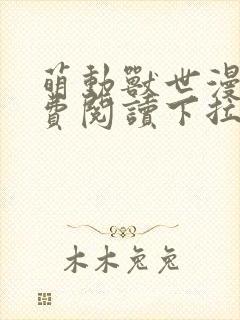 萌動獸世漫
費閱讀下拉
木木兔兔